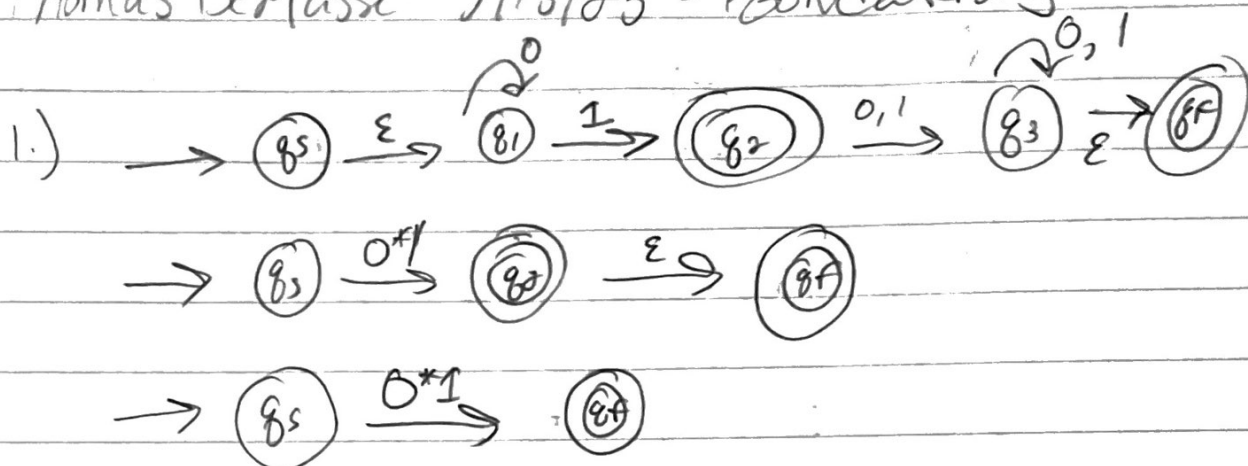 1.) → qs ε → q1 0 1 → q2 0,1 → q3 0,1 ε → qf
→ qs 0*1 → q2 ε → qf
→ qs 0*1 → qf